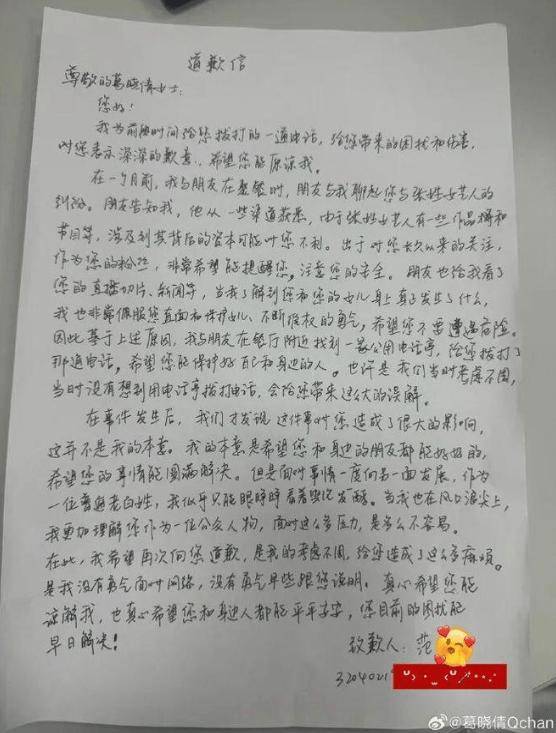 道歉信
尊敬的葛晓倩女士：
您好！
我为前段时间给您拨打的一通电话，给您带来的困扰和伤害，
对您表示深深的歉意，希望您能原谅我。
在一个月前，我与朋友在聚餐时，朋友与我聊起您与张姓女艺人的
纠纷。朋友告知我，他从一些渠道获悉，由于张姓女艺人有一些作品播和
节目等，涉及到其背后的资本可能对您不利。出于对您长久以来的关注，
作为您的粉丝，非常希望能提醒您，注意您的安全。朋友也给我看了
您的直播切片、新闻等，当我了解到您和您的女儿身上真正发生了什么，
我也非常佩服您直面和保护女儿、不断维权的勇气，希望您不要遭遇危险。
因此基于上述原因，我与朋友在银厅附近找到一家公用电话亭，给您拨打了
那通电话，希望您能保护好自己和身边的人。也许是我们当时考虑不周，
当时没有想到用电话亭拨打电话，会给您带来这么大的误解。
在事件发生后，我们才发现这件事对您造成了很大的影响，
这并不是我的本意。我的本意是希望您和身边的朋友都能好好的，
希望您的事情能圆满解决。但是面对事情一度向另一面发展，作为
一位普通老百姓，我似乎只能眼睁睁看着变化发酵。当我也在风口浪尖上，
我更加理解您作为一位公众人物，面对这么多压力，是多么不容易。
在此，我希望再次向您道歉，是我的考虑不周，给您造成了这么多麻烦。
是我没有勇气面对网络，没有勇气早些跟您说明。真心希望您能
谅解我，也真心希望您和身边人都能平平安安，您目前的困扰能
早日解决！
致歉人：范
3204021
@葛晓倩Qchan